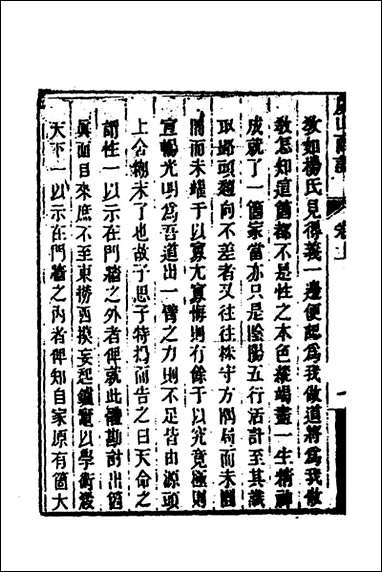 教如楊氏見得義一邊便認為我做道將為我做
教怎知這箇都不是性之本色縱竭盡一生精神
成就了一箇家當亦只是陰陽五行活計至其識
取路頭趨向不差者又往往株守方隅局而未圓
闇而未耀于以寡尤寡悔則有餘于以究竟極則
宣暢光明為吾道出一臂之力則不足皆由源頭
上公案未了也故子思子特揭而告之曰天命之
謂性一以示在門牆之外者俾就此體勘討出箇
眞面目來庶不至東撈西摸妄起鑪竈以學術殺
天下一以示在門牆之內者俾知自家原有箇大